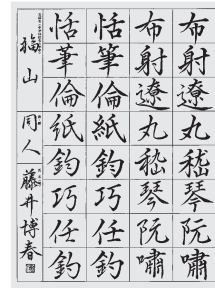 布射遼丸嵇琴阮嘯
布射遼丸嵇琴阮嘯
恬筆倫紙鈞巧任釣
恬筆倫紙鈞巧任釣
福山 同人 藤井博春